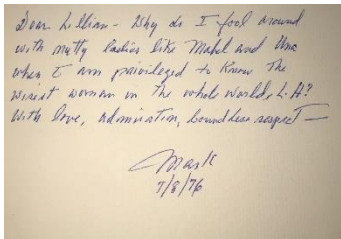 Dear Lillian - Why do I fool around
with nutty ladies like Mabel and Una
when I am privileged to know the
wisest woman in the whole world, L.H?
With love, admiration, boundless respect —
Mark
7/8/76